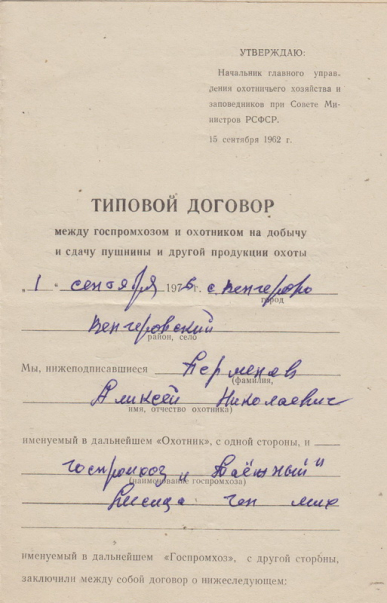 УТВЕРЖДАЮ:
Начальник главного управ-
ления охотничьего хозяйства и
заповедников при Совете Ми-
нистров РСФСР.
15 сентября 1962 г.
ТИПОВОЙ ДОГОВОР
между госпромхозом и охотником на добычу
и сдачу пушнины и другой продукции охоты
„1" сентября 1976 г. с Венгерово
город
Венгеровский
район, село
Мы, нижеподписавшиеся
(фамилия,
Алексей Николаевич
имя, отчество охотника)
именуемый в дальнейшем «Охотник», с одной стороны, и
госпромхоз „Таёжный"
(наименование госпромхоза)
именуемый в дальнейшем «Госпромхоз», с другой стороны,
заключили между собой договор о нижеследующем: